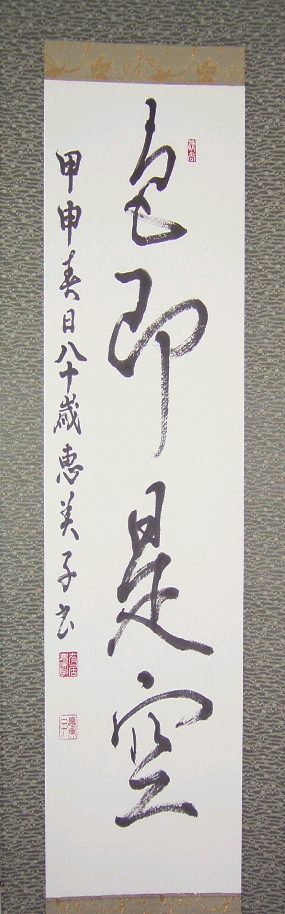 色即是空
甲申春日八十歳恵美子書